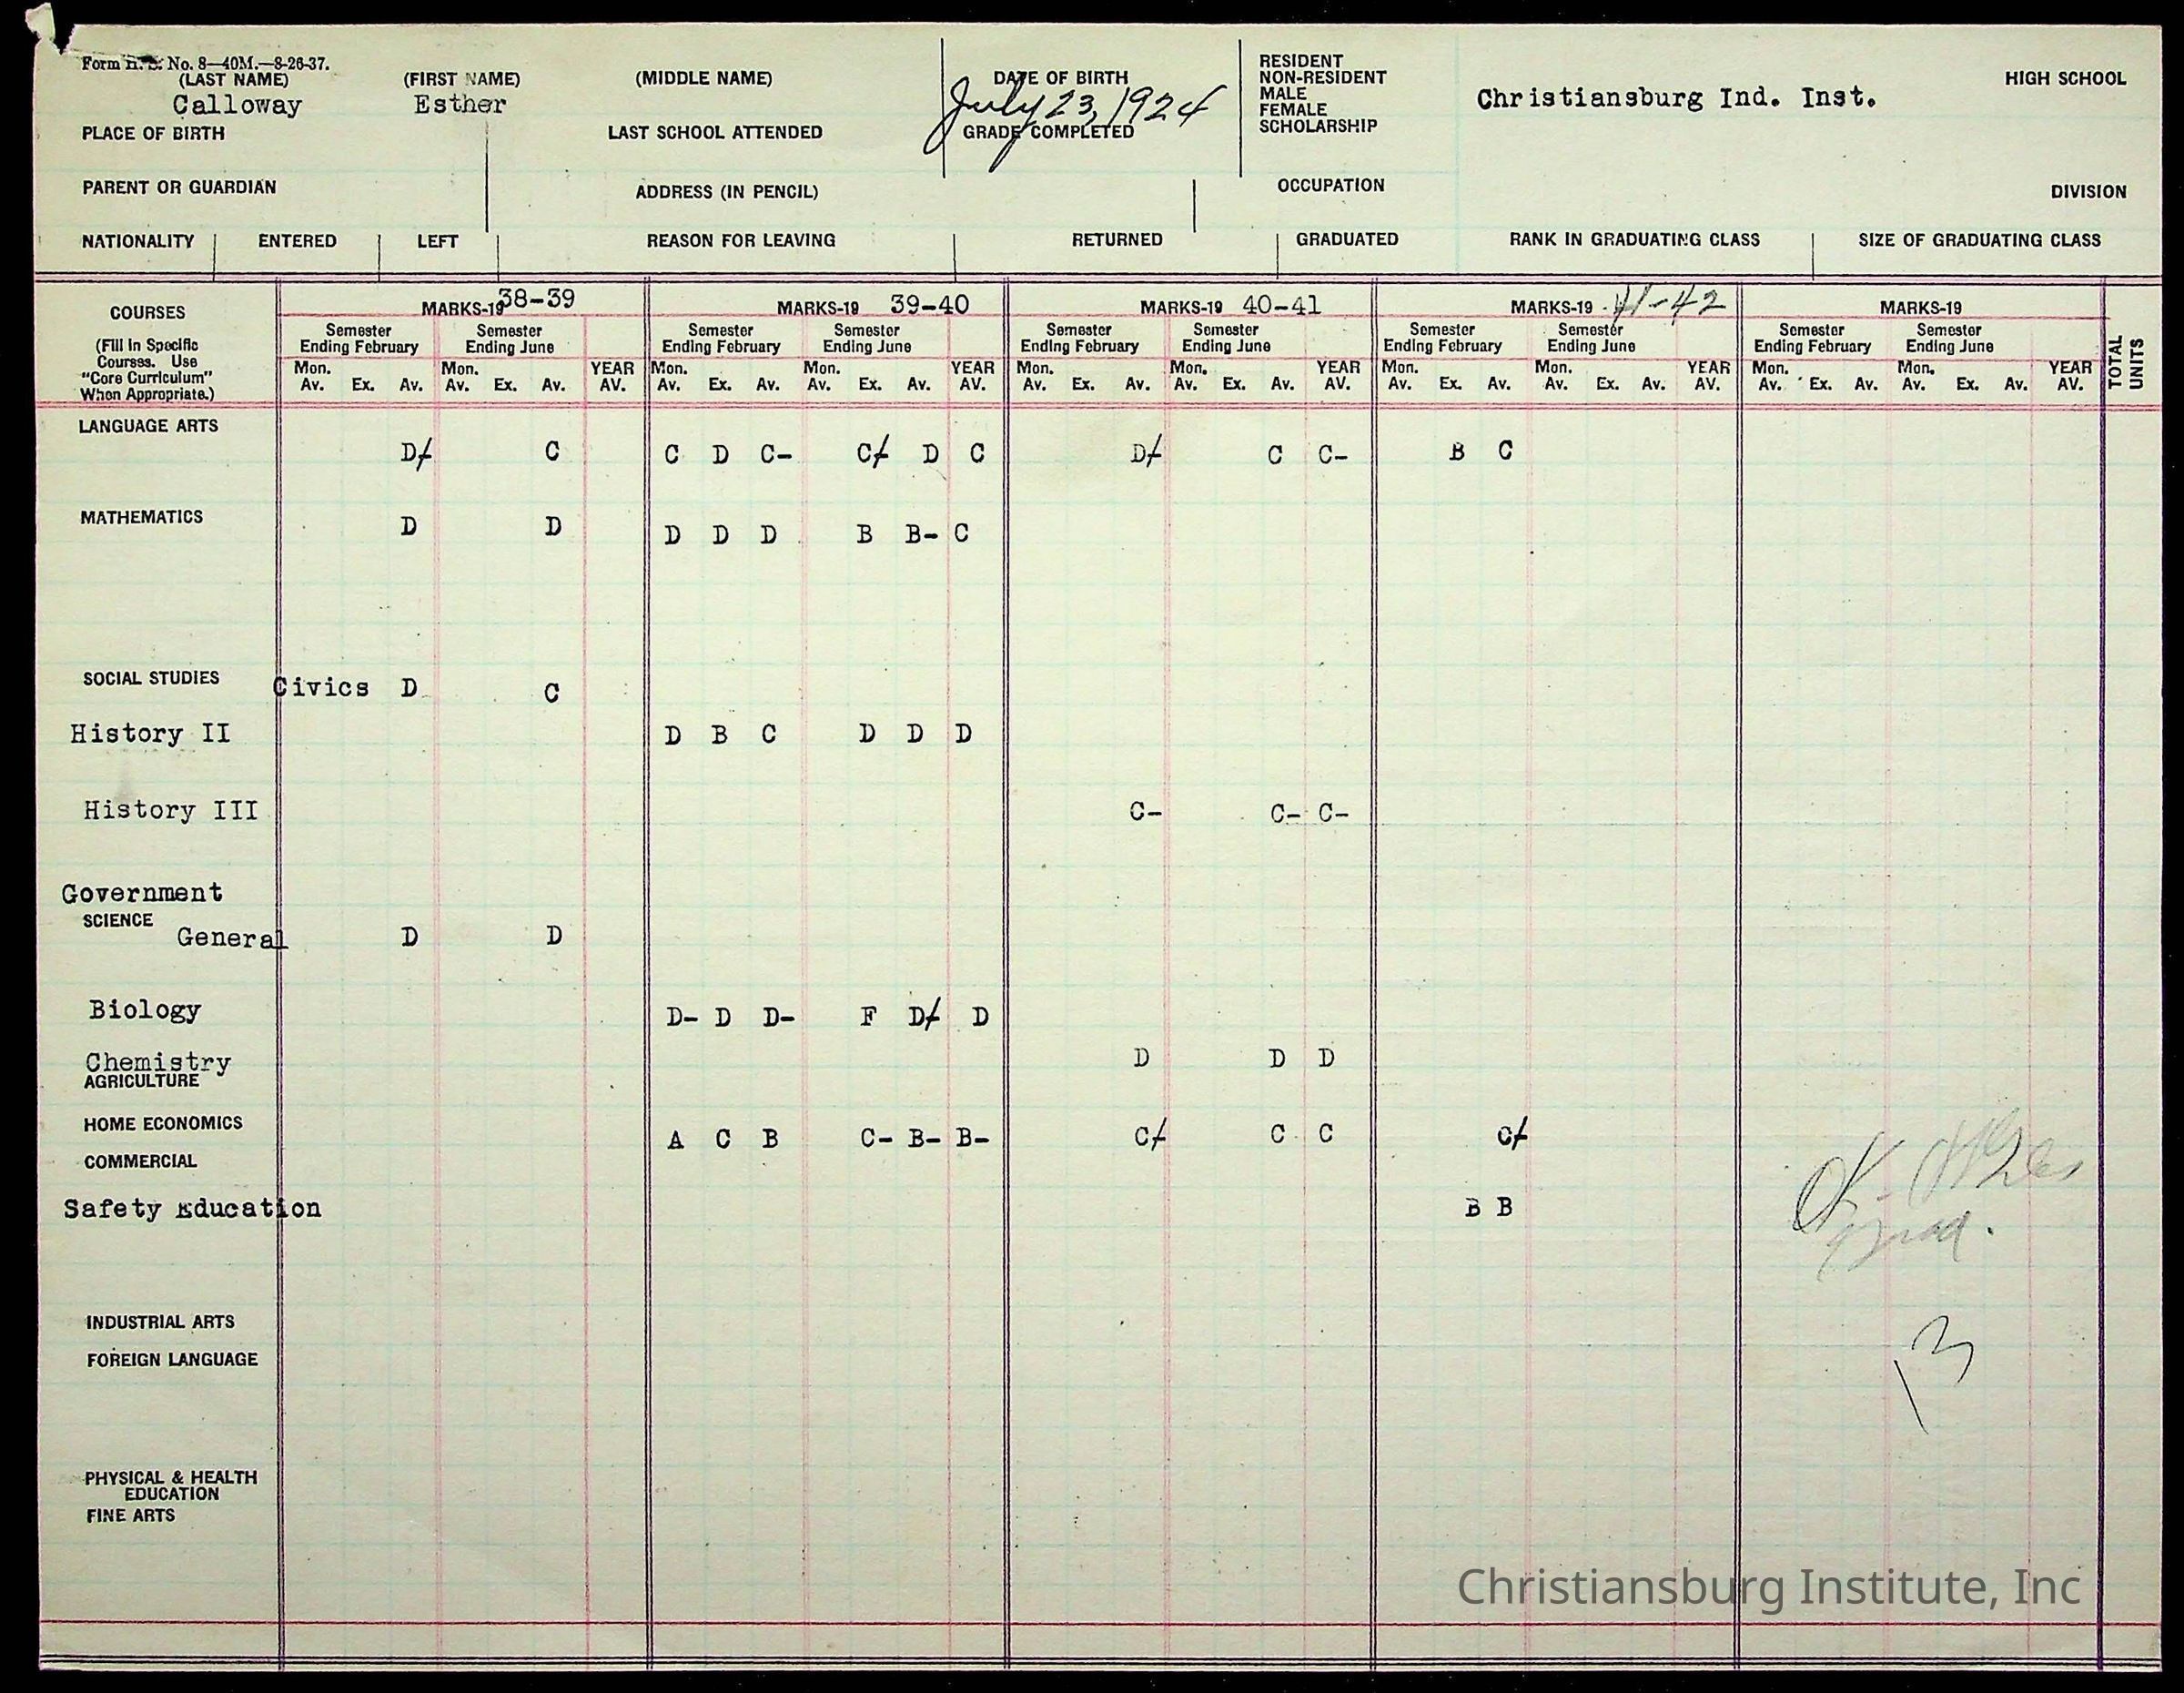 Form H. S. No. 8—40M.—8-26-37.
(LAST NAME) (FIRST NAME) (MIDDLE NAME) DATE OF BIRTH RESIDENT HIGH SCHOOL
NON-RESIDENT
Calloway Esther July 23, 1924 MALE Christiansburg Ind. Inst.
FEMALE
PLACE OF BIRTH LAST SCHOOL ATTENDED GRADE COMPLETED SCHOLARSHIP
PARENT OR GUARDIAN ADDRESS (IN PENCIL) OCCUPATION DIVISION
NATIONALITY ENTERED LEFT REASON FOR LEAVING RETURNED GRADUATED RANK IN GRADUATING CLASS SIZE OF GRADUATING CLASS
COURSES MARKS-19 38-39 MARKS-19 39-40 MARKS-19 40-41 MARKS-19 41-42 MARKS-19 TOTAL UNITS
(Fill In Specific Semester Semester Semester Semester Semester Semester Semester Semester Semester Semester
Courses. Use Ending February Ending June Ending February Ending June Ending February Ending June Ending February Ending June Ending February Ending June
"Core Curriculum" Mon. Mon. YEAR Mon. Mon. YEAR Mon. Mon. YEAR Mon. Mon. YEAR Mon. Mon. YEAR
When Appropriate.) Av. Ex. Av. Av. Ex. Av. AV. Av. Ex. Av. Av. Ex. Av. AV. Av. Ex. Av. Av. Ex. Av. AV. Av. Ex. Av. Av. Ex. Av. AV. Av. Ex. Av. Av. Ex. Av. AV.
LANGUAGE ARTS
D/ C C D C- C/ D C D/ C C- B C
MATHEMATICS
D D D D D B B- C
SOCIAL STUDIES Civics D C
History II D B C D D D
History III C- C- C-
Government
SCIENCE
General D D
Biology D- D D- F D/ D
Chemistry D D D
AGRICULTURE
HOME ECONOMICS A C B C- B- B- C/ C C C/
COMMERCIAL
Safety Education B B
OK-
grad.
INDUSTRIAL ARTS
13
FOREIGN LANGUAGE
PHYSICAL & HEALTH
EDUCATION
FINE ARTS
Christiansburg Institute, Inc